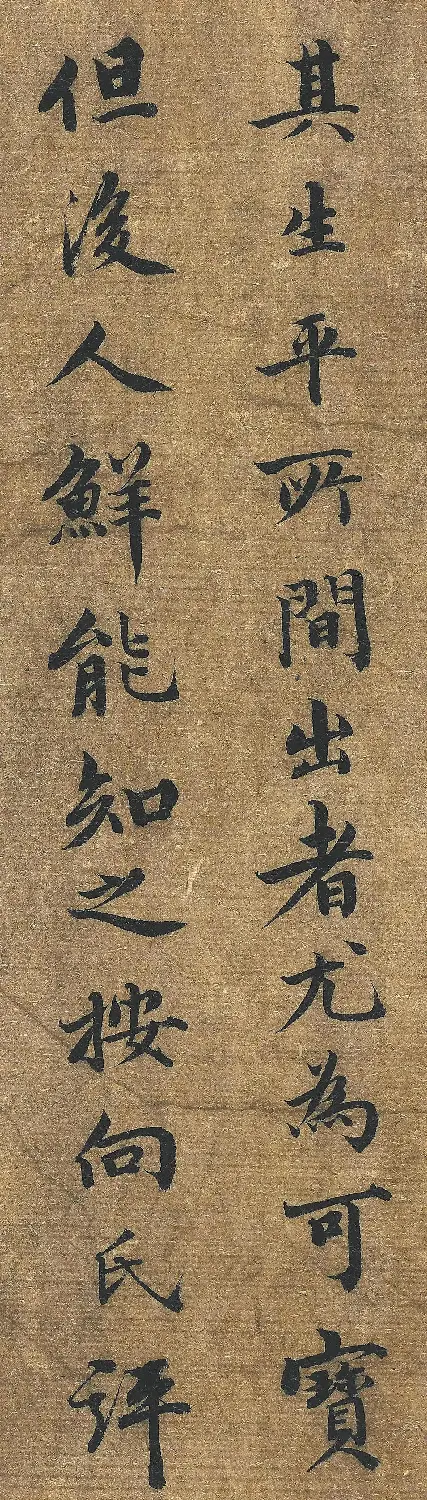 其生平所間出者尤為可寶
但後人鮮能知之按向氏評